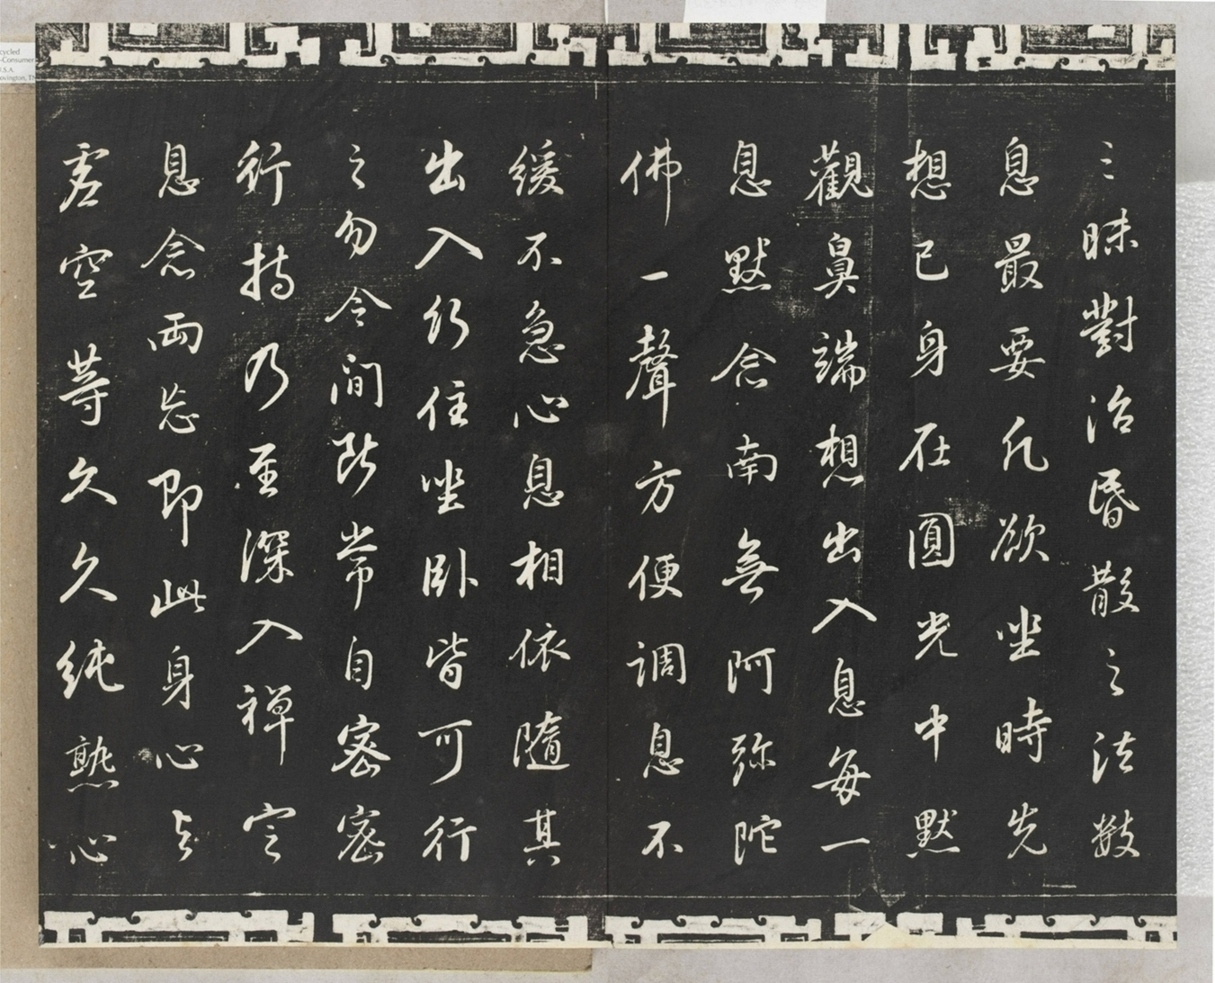 三昧對治昏散之法數
息最要凡欲坐時先
想己身在圓光中默
觀鼻端想出入息每一
息默念南無阿彌陀
佛一聲方便調息不
緩不急心息相依隨其
出入行住坐臥皆可行
之勿令間斷常自密密
行持乃至深入禪定
息念兩忘即此身心與
虛空等久久純熟心